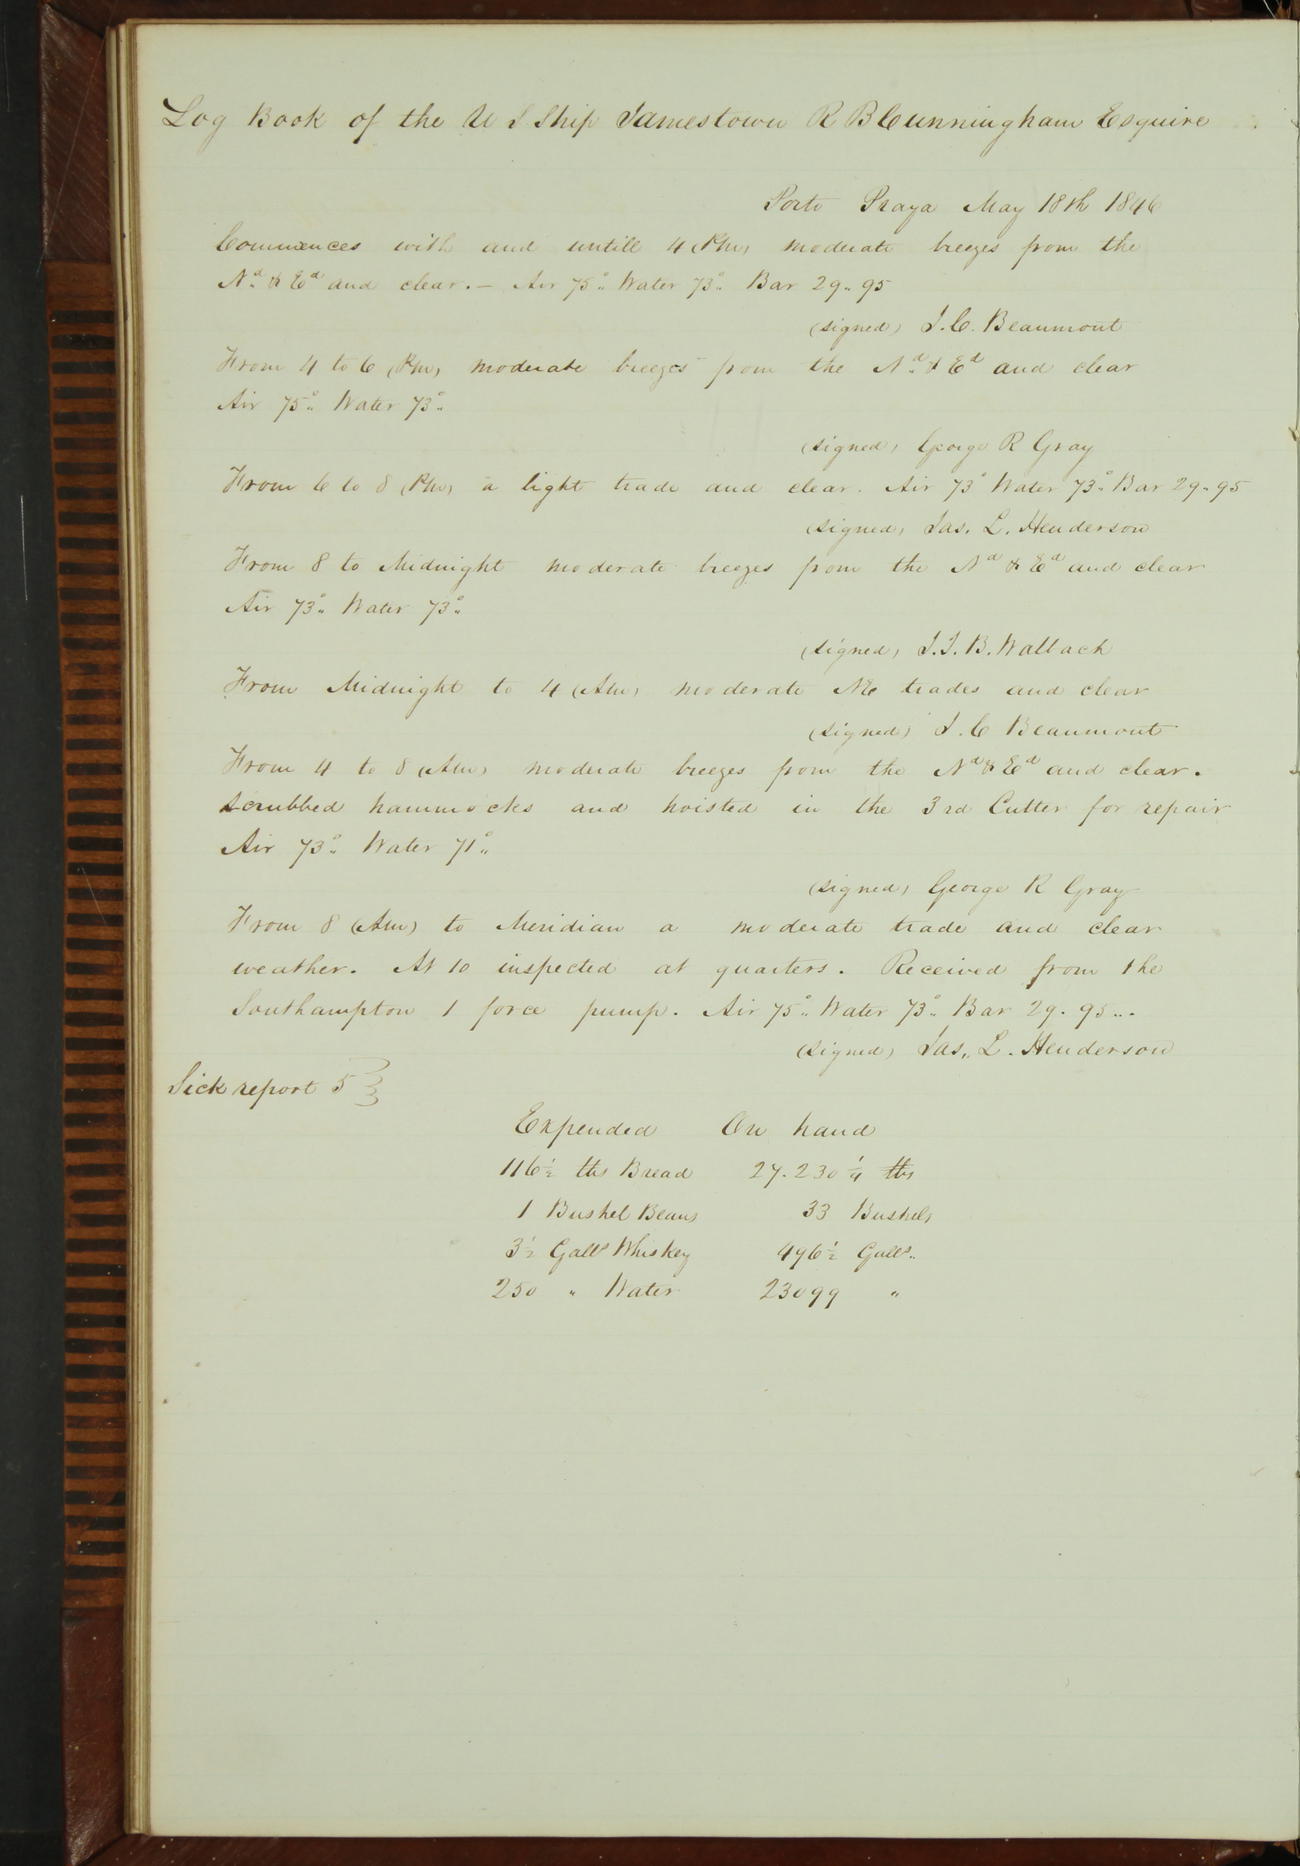 Log Book of the U S Ship Jamestown R B Cunningham Esquire
Porto Praya May 18th 1846
Commences with and untill 4 (Pm) moderate breezes from the
Nd. & Ed and clear. — Air 75° Water 73° Bar 29.95
(signed) J. C. Beaumont
From 4 to 6 (Pm) moderate breezes from the Nd. & Ed and clear
Air 75° Water 73°
(signed) George R Gray
From 6 to 8 (Pm) a light trade and clear. Air 73° Water 73° Bar 29.95
(signed) Jas. L. Henderson
From 8 to Midnight moderate breezes from the Nd & Ed and clear
Air 73° Water 73°
(signed) J. J. B. Walbach
From Midnight to 4 (Am) moderate NE trades and clear
(signed) J. C Beaumont
From 4 to 8 (Am) moderate breezes from the Nd & Ed and clear.
scrubbed hammocks and hoisted in the 3rd Cutter for repair
Air 73° Water 71°
(signed) George R Gray
From 8 (Am) to Meridian a moderate trade and clear
weather. At 10 inspected at quarters. Received from the
Southampton 1 force pump. Air 75° Water 73° Bar 29.95..
(signed) Jas,, L. Henderson
Sick report 5 }
Expended On hand
116½ lbs Bread 27.230 ¼ lbs
1 Bushel Beans 33 Bushels
3½ Galls Whiskey 496½ Galls..
250 " Water 23099 "